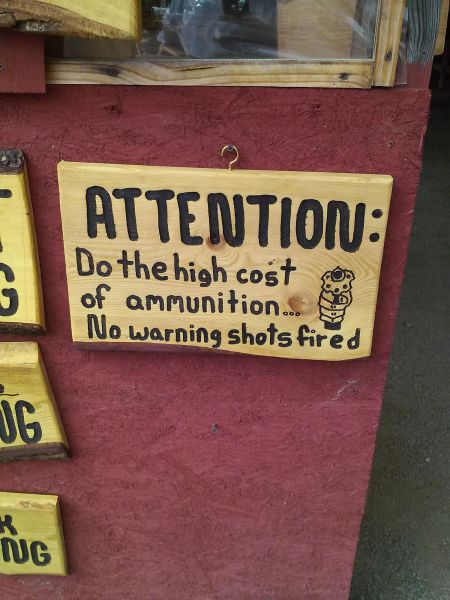 ATTENTION:
Do the high cost
of ammunition...
No warning shots fired
G
UG
K
NG